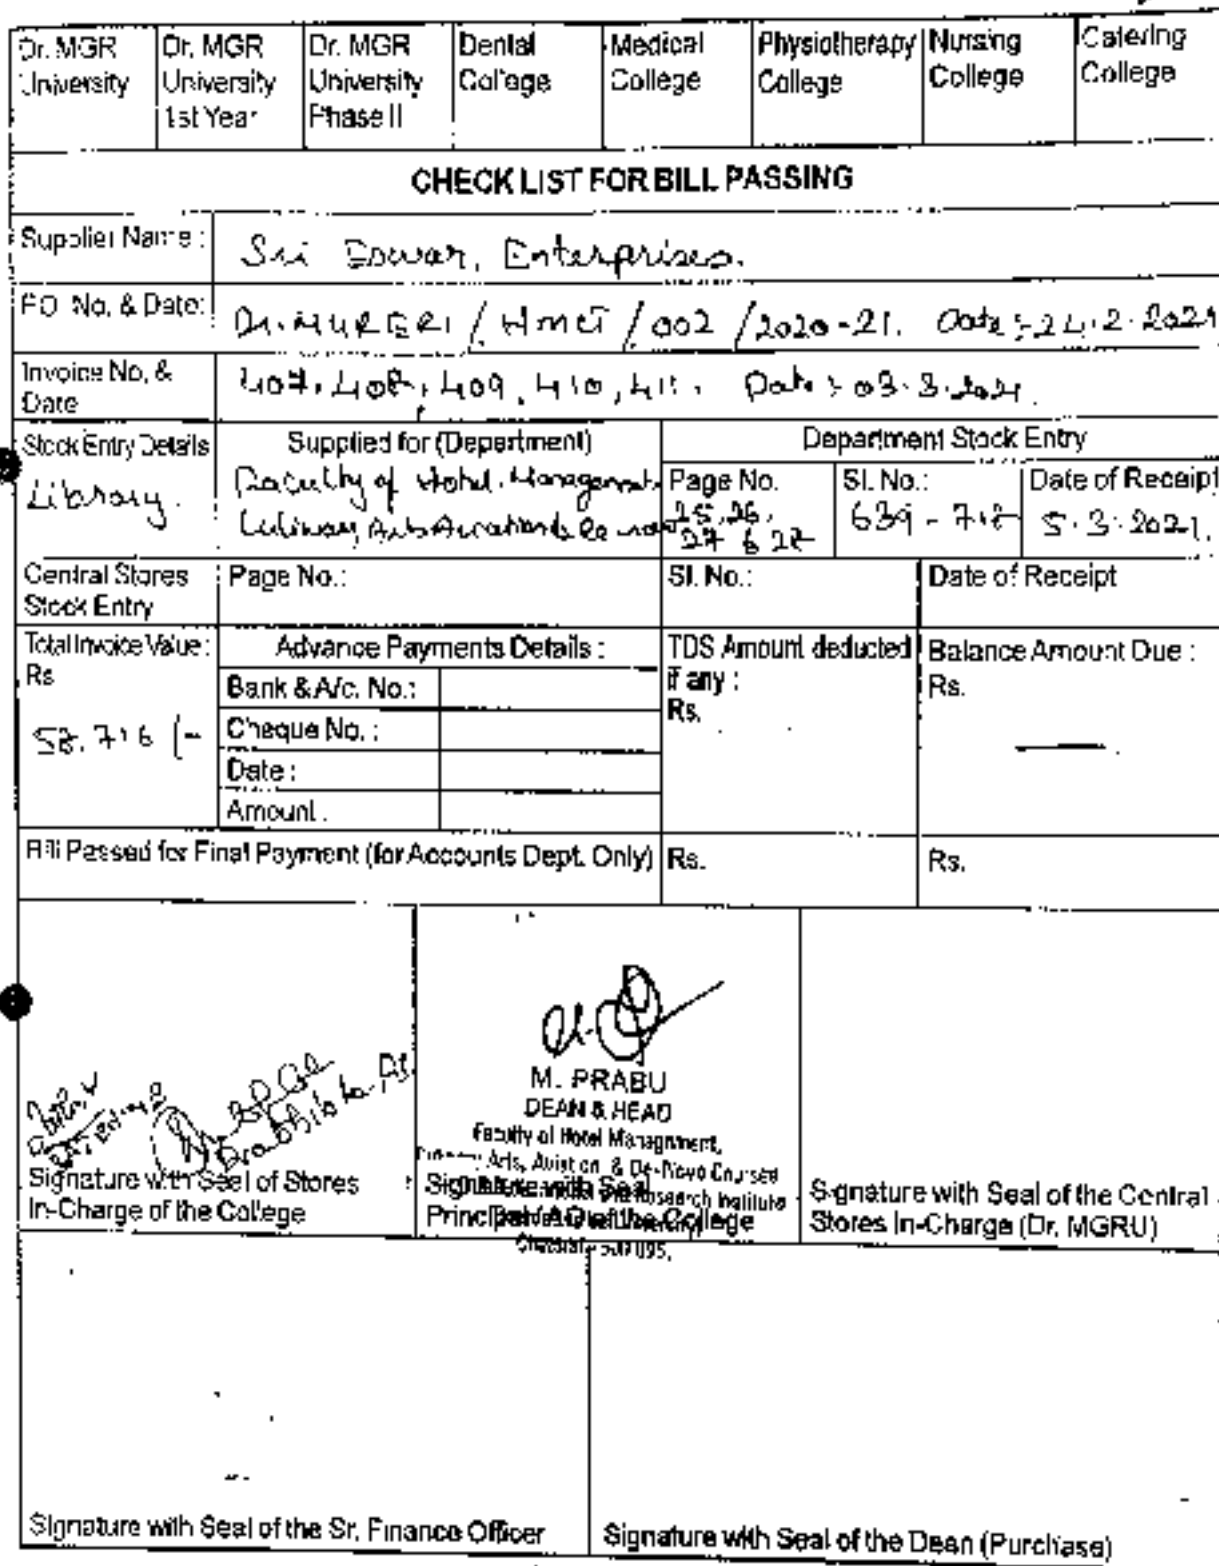 Dr. MGR University
Dr. MGR University 1st Year
Dr. MGR University Phase II
Dental College
Medical College
Physiotherapy College
Nursing College
Catering College
CHECK LIST FOR BILL PASSING
Supplier Name : Sri Eswar, Enterprises.
P.O. No. & Date: Dr. MGRERI / HMCT / 002 / 2020-21. Date : 24.2.2021
Invoice No. & Date 407, 408, 409, 410, 411. Date : 03.3.2021.
Stock Entry Details
Library.
Supplied for (Department)
Faculty of Hotel Management
Culinary Arts Aviation &
Department Stock Entry
Page No.
25, 26,
27 & 28
Sl. No.:
639 - 718
Date of Receipt
5.3.2021.
Central Stores Stock Entry
Page No.:
Sl. No.:
Date of Receipt
Total Invoice Value :
Rs
58,716 /-
Advance Payments Details :
Bank & A/c. No.:
Cheque No. :
Date :
Amount :
TDS Amount deducted
if any :
Rs.
Balance Amount Due :
Rs.
Bill Passed for Final Payment (for Accounts Dept. Only)
Rs.
Rs.
Signature with Seal of Stores
In-Charge of the College
M. PRABU
DEAN & HEAD
Faculty of Hotel Management,
Culinary Arts, Aviation & De-Novo Courses
Research Institute
Signature with Seal
Principal of the College
Signature with Seal of the Central
Stores In-Charge (Dr. MGRU)
Signature with Seal of the Sr. Finance Officer
Signature with Seal of the Dean (Purchase)